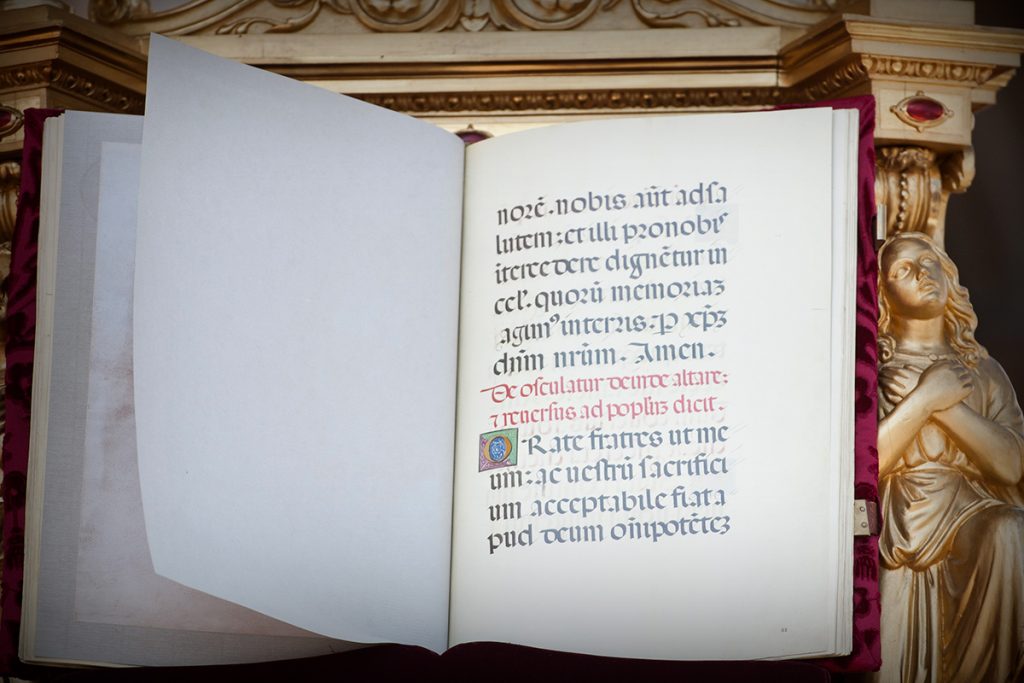 norē. nobis aūt ad sa
lutem: et illi pro nobis
itercedere dignētur in
cel'. quorū memoriaʒ
agimꝰ in terris. P xp̄ʒ
dn̄m nr̄um. Amen.
De osculatur deinde altare:
⁊ reuersus ad popl̄uʒ dicit.
ORate fratres ut me
um: ac uestrū sacrifici
um acceptabile fiat a
pud deum oīpotēteʒ